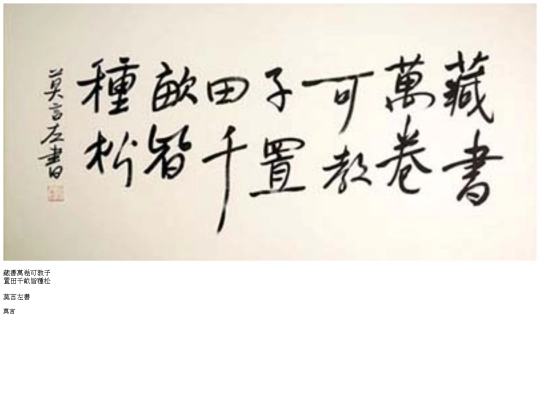 藏書
萬卷
可教
子置
田千
畝皆
種松
莫言左書
藏書萬卷可教子
置田千畝皆種松
莫言左書
莫言